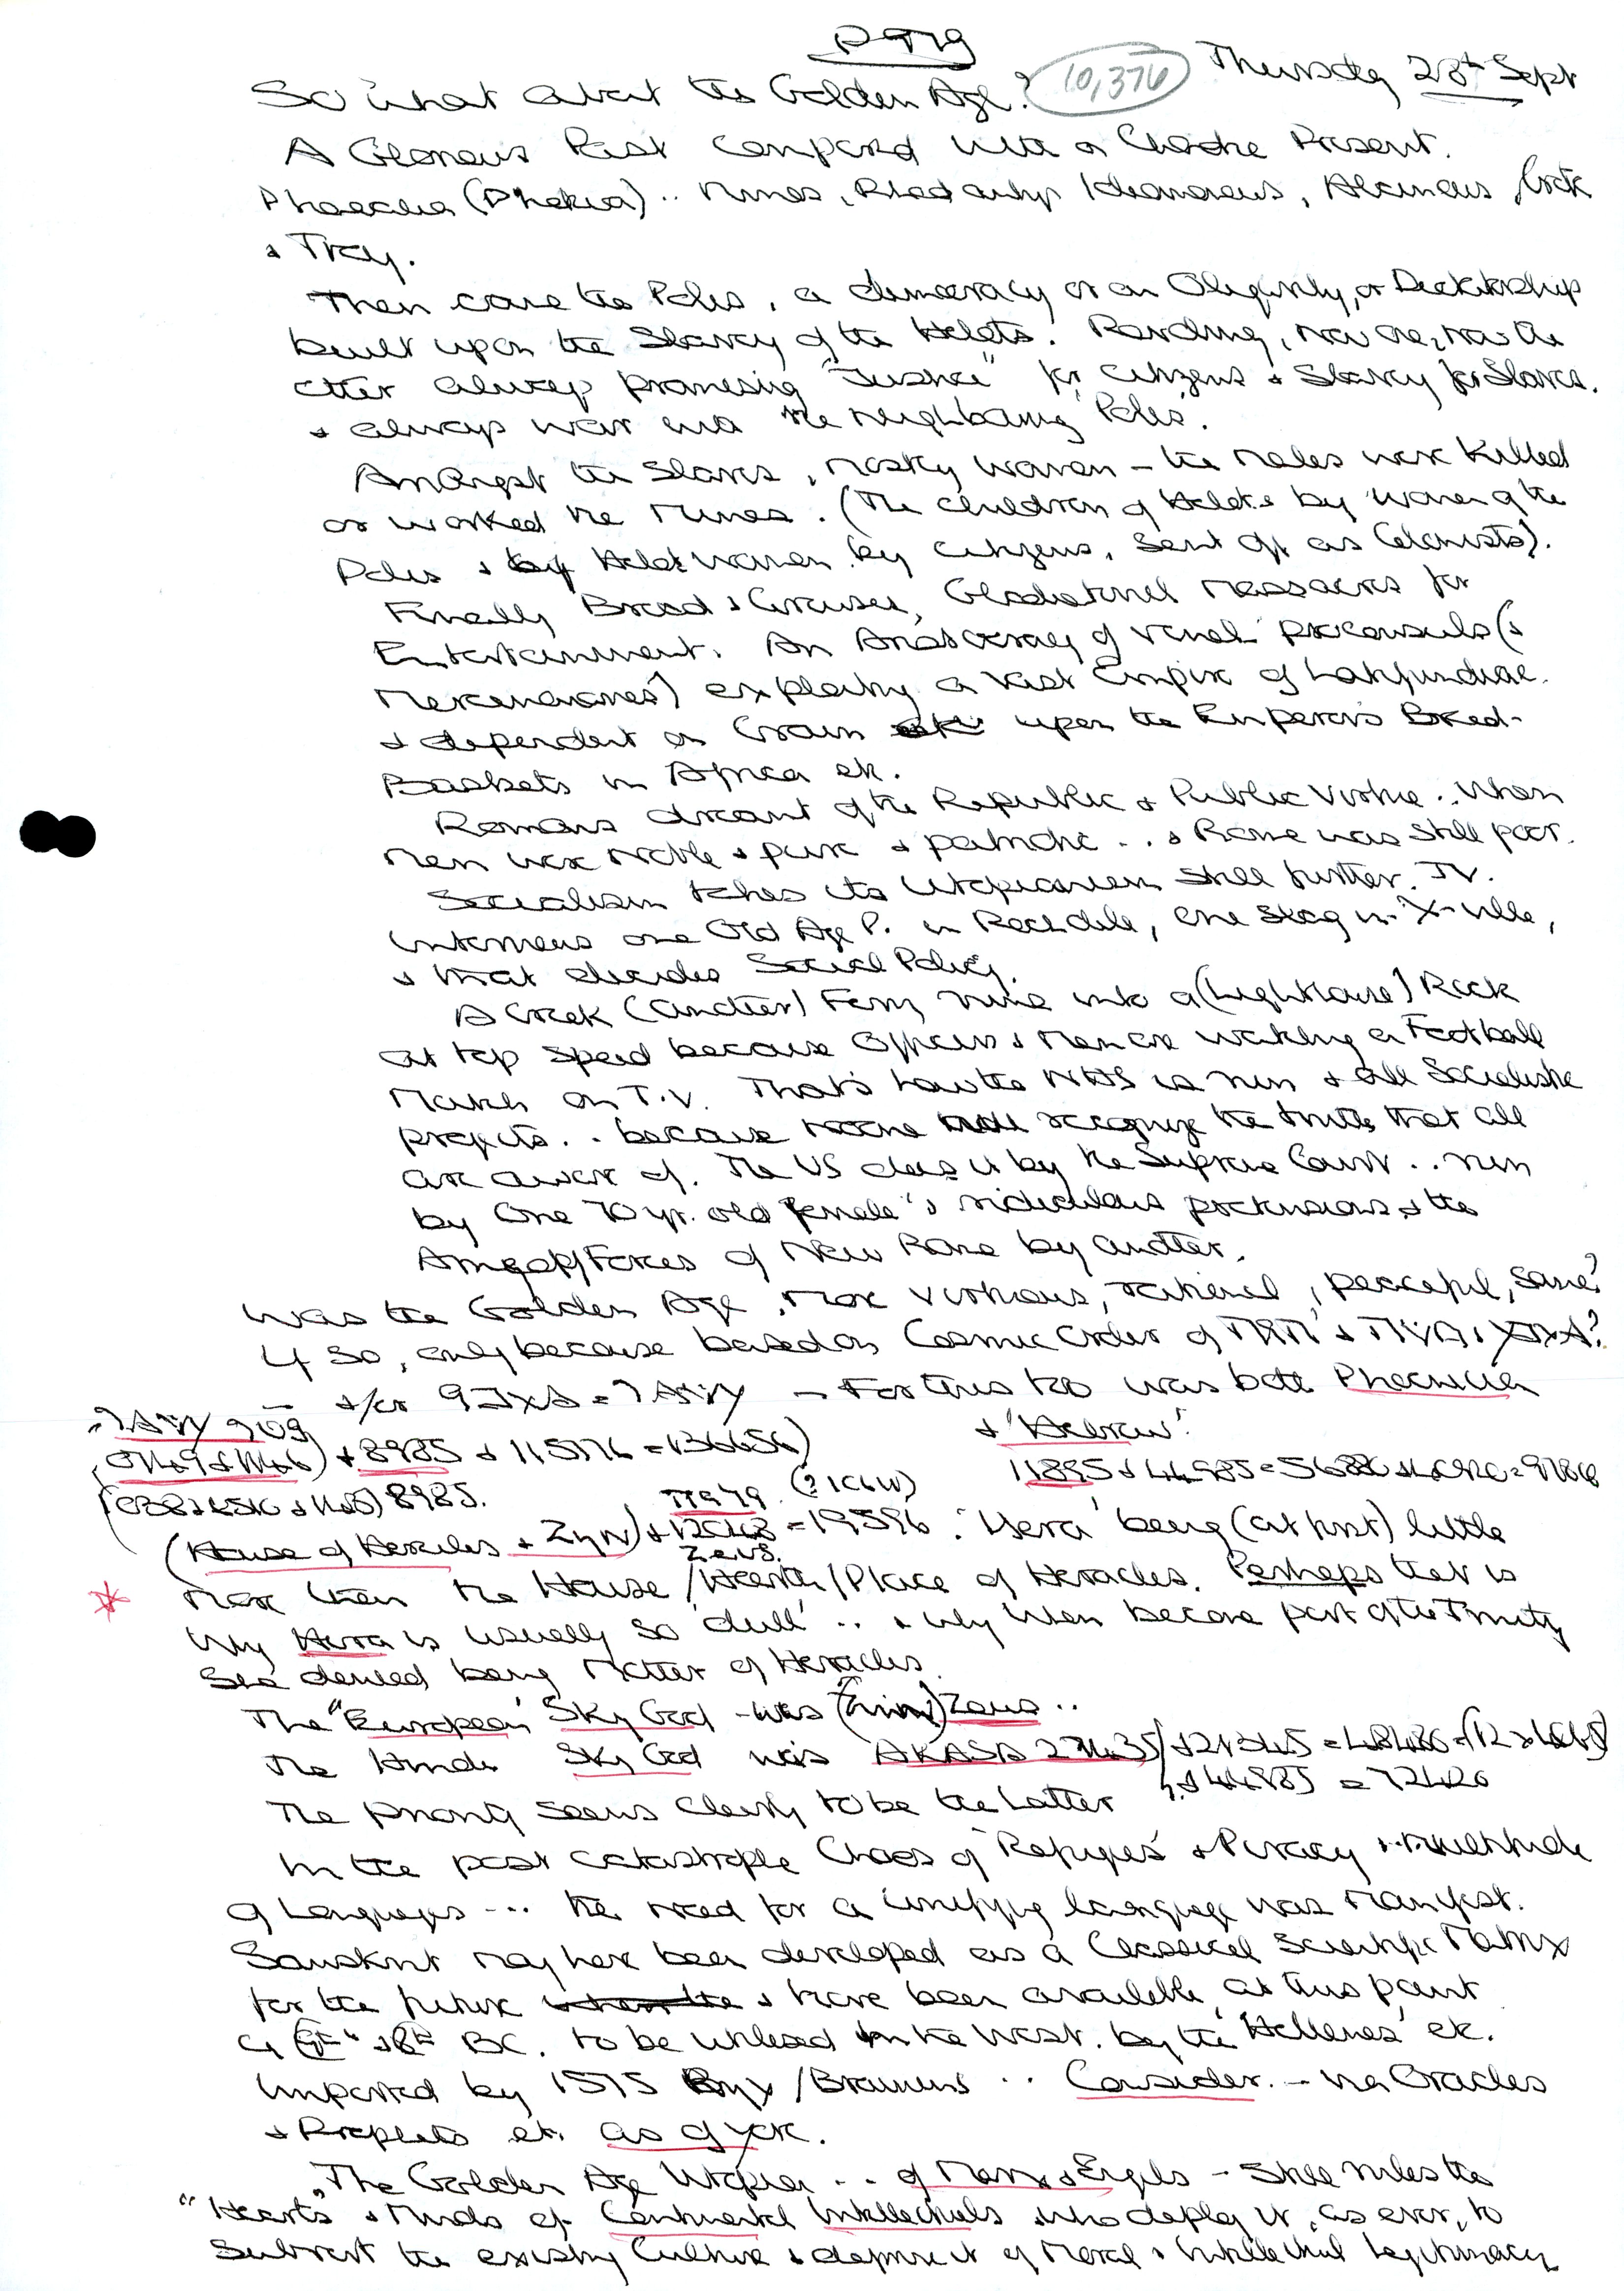 10,376 Thursday 28th Sept
So what about the Golden Age?
A Glorious Past compared with a Chaotic Present.
Phaeacia (Phakia) .. Minos, Idomeneus, Alcinous, Crete
& Troy.
Then came the Polis, a democracy or an Oligarchy, or Dictatorship
built upon the Slavery of the Helots. now one, now the
other always promising "Justice" for Citizens & Slavery for Slaves.
& always war with the neighbouring 'Poleis'.
Amongst the Slaves, mostly women - the males were killed
or worked the Mines. (The children of Helots by women of the
Polis & by Helot women by citizens, sent off as Colonists).
Finally Bread & Circuses, Gladiatorial Massacres for
Entertainment. An Aristocracy of venal proconsuls (&
Mercenaries) exploiting a vast Empire of Latifundiae
& dependent on Grain upon the Emperor's Bread-
Baskets in Africa etc.
Romans dreamt of the Republic & Public Virtue .. When
men were noble & pure & patriotic .. & Rome was still poor.
Socialism takes its Utopianism still further. T.V.
interviews one Old Age P. in Rochdale, one Slag in X-ville,
& that decides Social Policy.
A Greek (another) Ferry runs into a (Lighthouse) Rock
at top speed because Officers & Men are watching a Football
Match on T.V. That's how the NHS is run & all Socialistic
projects .. because no one will recognize the truth that all
are aware of. The US does it by the Supreme Court .. run
by One 70 yr. old female's ridiculous pretensions & the
Forces of New Rome by another.
Was the Golden Age more virtuous, rational, peaceful, sane?
If so, only because based on Cosmic Order of
&/or - For this too was both Phoenician
& 'Hebrew'.
+ 8985 + 115176 = 136656)
8985.
(? 1C6W)
(House of Hercules + = 19596. 'Hera' being (at first) little
Zeus.
more than the House/Hearth/Place of Heracles. Perhaps that is
why Hera is usually so 'dull' .. & why when become part of the Trinity
She denied being Mother of Heracles.
The "European" Sky God - was Zeus ..
The Hindu Sky God was AKASA
= 72420
The priority seems clearly to be the Latter
In the post catastrophe Chaos of 'Refugees' & Piracy & multitude
of Languages ... the need for a unifying language was manifest.
Sanskrit may have been developed as a Classical Scientific Matrix
for the future & have been available at this point
BC. to be utilised in the West by the 'Hellenes' etc.
Imparted by 1575 /Bramins .. Consider. - via Oracles
& Prophets etc. as of yore.
"The Golden Age Utopia .. of Marx & Engels - still rules the
"Hearts & Minds of Continental Intellectuals who deploy it, as ever, to
Subvert the existing Culture & deprive it of Moral & Intellectual legitimacy